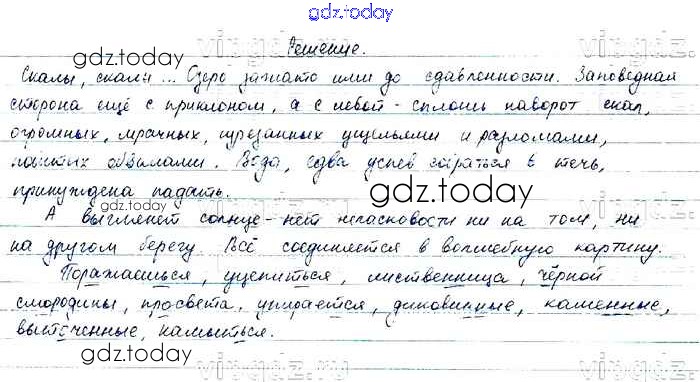 gdz.today
Решение.
Скалы, скалы... Озеро зажато ими до сдавленности. Заповедная
сторона ещё с приклоном, а с левой - сплошь наворот скал,
огромных, мрачных, изрезанных ущельями и разломами,
обвалами. Вода, едва успев собраться в течь,
принуждена падать.
А выглянет солнце - нет неласковости ни на том, ни
на другом берегу. Всё соединяется в волшебную картину.
Поражаешься, уцепиться, лиственница, чёрной
смородины, просвета, упирается, диковинные, каменные,
выточенные, намыться.
gdz.today
gdz.today
gdz.today
vipgdz.ru
vipgdz.ru